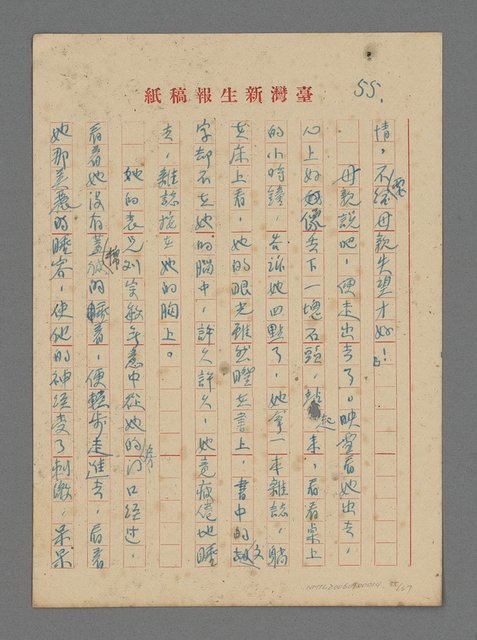 紙稿報生新灣臺
55.
情,不要給母親失望才好!」
母親說吧,便走出去了。映雪看她出去,
心上好像丟下一塊石頭,起來,看看桌上
的小時鐘,告訴她四點了,她拿一本雜誌,躺
在床上看,她的眼光雖然瞪在書上,書中的文
字却不在她的腦中,許久許久,她竟疲倦地睡
去,雜誌掉在她的胸上。
她的表兄刘宗敏無意中從她的房門口經過,
看着她沒有蓋棉被的睡着,便輕步走進去,看着
她那美麗的睡容,使他的神經受了刺激,呆呆
55/67